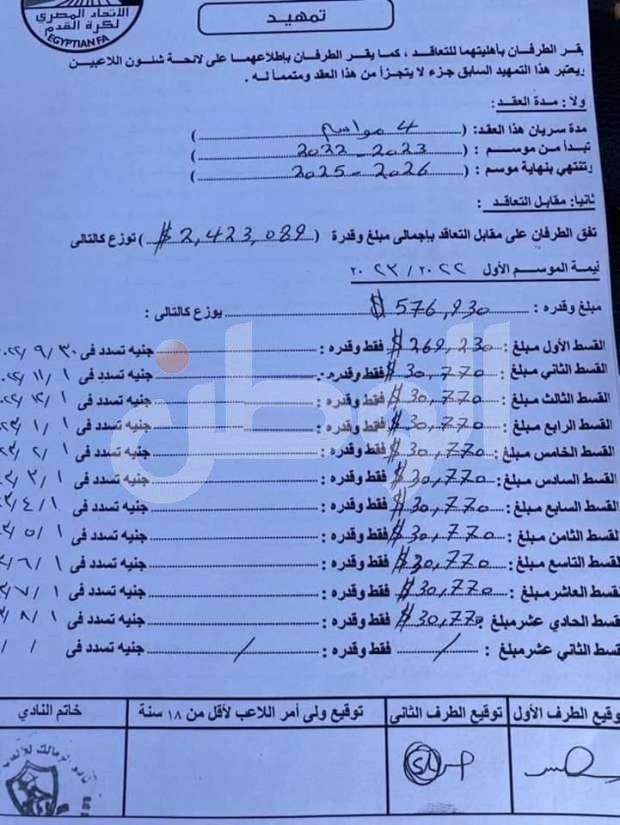 الاتحاد المصرى
لكرة القدم
EGYPTIAN FA
تمهيد
يقر الطرفان بأهليتهما للتعاقد ، كما يقر الطرفان بإطلاعهما على لائحة شئون اللاعبين
ويعتبر هذا التمهيد السابق جزء لا يتجزأ من هذا العقد ومتمماً له .
ولاً : مدة العقد :
مدة سريان هذا العقد : ( 4 مواسم )
تبدأ من موسم : ( 2022 - 2023 )
وتنتهي بنهاية موسم : ( 2025 - 2026 )
ثانياً : مقابل التعاقد :
تفق الطرفان على مقابل التعاقد بإجمالى مبلغ وقدرة ( $ 2,423,089 ) توزع كالتالى
قيمة الموسم الأول ٢٠٢٢ / ٢٠٢٣
مبلغ وقدره : $ 576,930 يوزع كالتالى :
القسط الأول مبلغ : $ 269,230 فقط وقدره : جنيه تسدد فى ٣٠ / ٩ /
القسط الثاني مبلغ : $ 30,770 فقط وقدره : جنيه تسدد فى ١ / ١١ /
القسط الثالث مبلغ : $ 30,770 فقط وقدره : جنيه تسدد فى ١ / ١٢ /
القسط الرابع مبلغ : $ 30,770 فقط وقدره : جنيه تسدد فى ١ / ١ /
القسط الخامس مبلغ : $ 30,770 فقط وقدره : جنيه تسدد فى ١ / ٢ /
القسط السادس مبلغ : $ 30,770 فقط وقدره : جنيه تسدد فى ١ / ٣ /
القسط السابع مبلغ : $ 30,770 فقط وقدره : جنيه تسدد فى ١ / ٤ /
القسط الثامن مبلغ : $ 30,770 فقط وقدره : جنيه تسدد فى ١ / ٥ /
القسط التاسع مبلغ : $ 30,770 فقط وقدره : جنيه تسدد فى ١ / ٦ /
القسط العاشر مبلغ : $ 30,770 فقط وقدره : جنيه تسدد فى ١ / ٧ /
القسط الحادي عشر مبلغ : $ 30,770 فقط وقدره : جنيه تسدد فى ١ / ٨ /
القسط الثاني عشر مبلغ : / فقط وقدره : / جنيه تسدد فى / /
الوطن
توقيع الطرف الأول
توقيع الطرف الثانى
توقيع ولى أمر اللاعب لأقل من ١٨ سنة
خاتم النادي